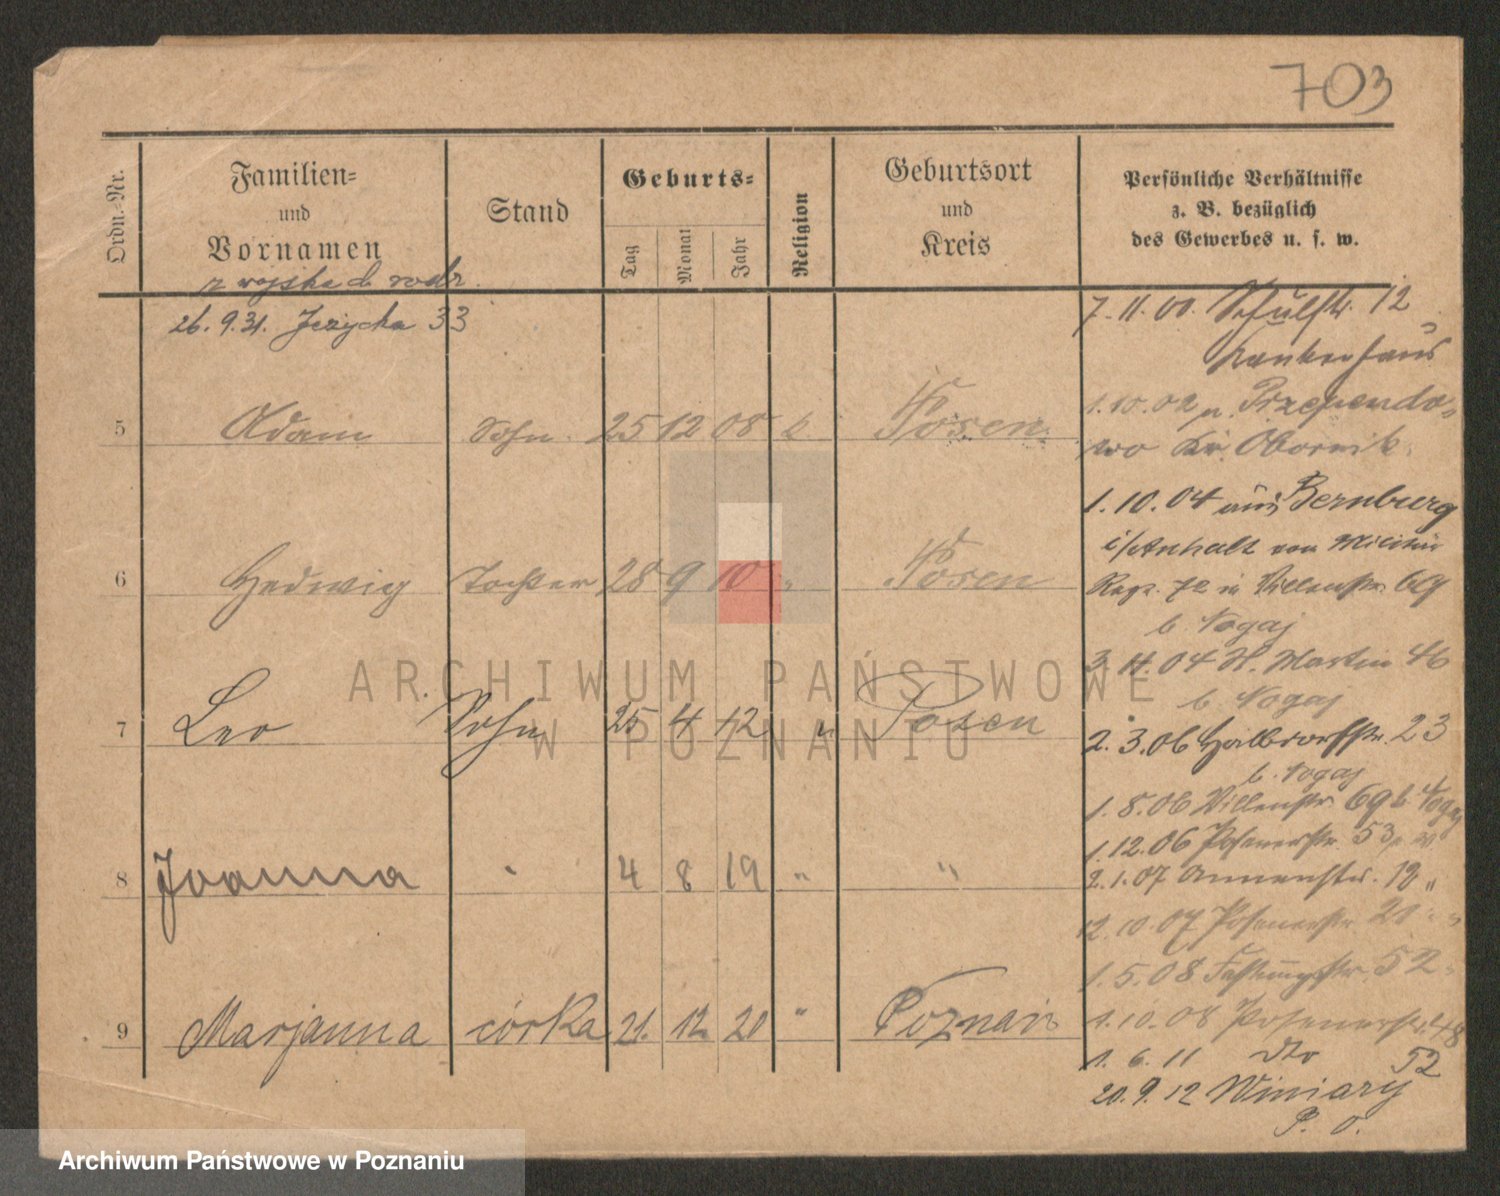 703
Ordn.-Nr.
Familien-
und
Vornamen
Stand
Geburts-
Tag
Monat
Jahr
Religion
Geburtsort
und
Kreis
Persönliche Verhältnisse
z. B. bezüglich
des Gewerbes u. s. w.
z wojska do rodz.
26.9.31. Jezycka 33
5 Adam Sohn 25 12 08 k. Posen
6 Hedwig Tochter 28 9 10 " Posen
7 Leo Sohn 25 4 12 " Posen
8 Joanna 4 8 19 " "
9 Marjanna córka 21. 12. 20 " Poznań
7.11.00. Schulstr. 12
Krankenhaus
1.10.02 n. Przependo-
wo Kr. Obornik.
1.10.04 aus Bernburg
i/Anhalt vom Militär
Reg. in Villenstr. 69
b. Nogaj
3.11.04 St. Martin 46
b. Nogaj
2.3.06 23
b. Nogaj
1.8.06 Villenstr. 69 b. Nogaj
1.12.06 Posenerstr. 53
2.1.07 Annenstr. 12 "
12.10.07 Posenerstr. 20 "
1.5.08 Festungsstr. 52
1.10.08 Posenerstr. 48
1.6.11 dto 52
20.9.12 Winiary
P. O.
ARCHIWUM PAŃSTWOWE
W POZNANIU
Archiwum Państwowe w Poznaniu